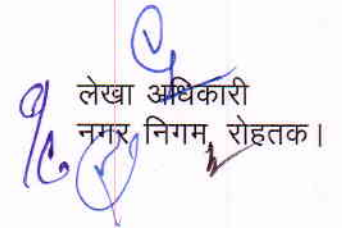 लेखा अधिकारी
नगर निगम, रोहतक।